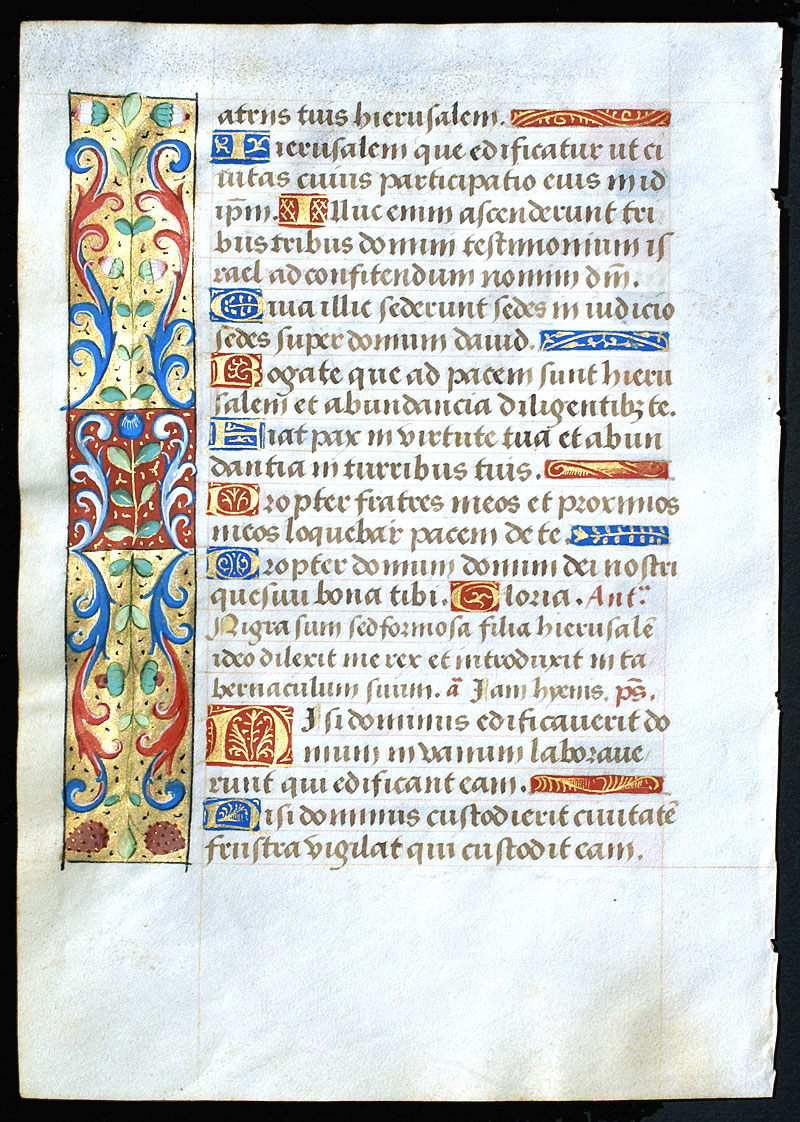 atriis tuis hierusalem.
Hierusalem que edificatur ut ci
uitas cuius participatio eius in id
ip̄m. Illuc enim ascenderunt tri
bus tribus domini testimonium is
rael ad confitendum nomini dn̄i.
Quia illic sederunt sedes in iudicio
sedes super domum dauid.
Rogate que ad pacem sunt hieru
salem et abundancia diligentibꝫ te.
Fiat pax in virtute tua et abun
dantia in turribus tuis.
Propter fratres meos et proximos
meos loquebar pacem de te.
Propter domum domini dei nostri
quesiui bona tibi. Gloria. Ant.
Nigra sum sed formosa filia hierusalē
ideo dilexit me rex et introduxit in ta
bernaculum suum. ā Iam hyems. ps̄.
Nisi dominus edificauerit do
mum in vanum laboraue
runt qui edificant eam.
Nisi dominus custodierit ciuitatē
frustra vigilat qui custodit eam.